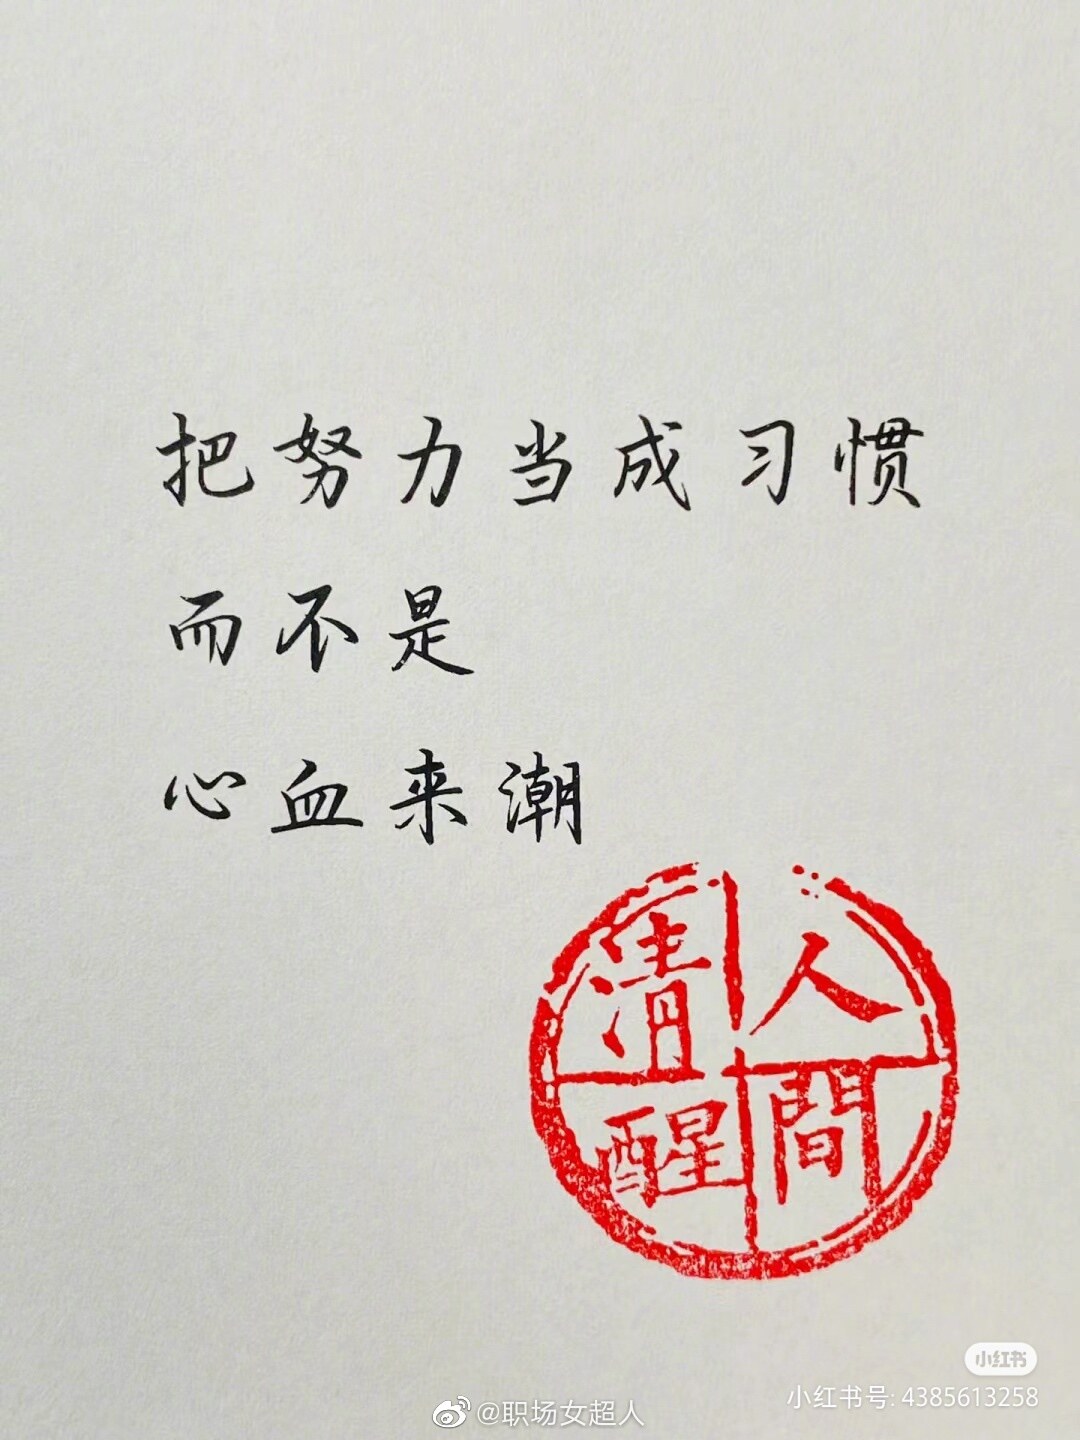 把努力当成习惯
而不是
心血来潮
人間清醒
小红书
小红书号: 4385613258
@职场女超人